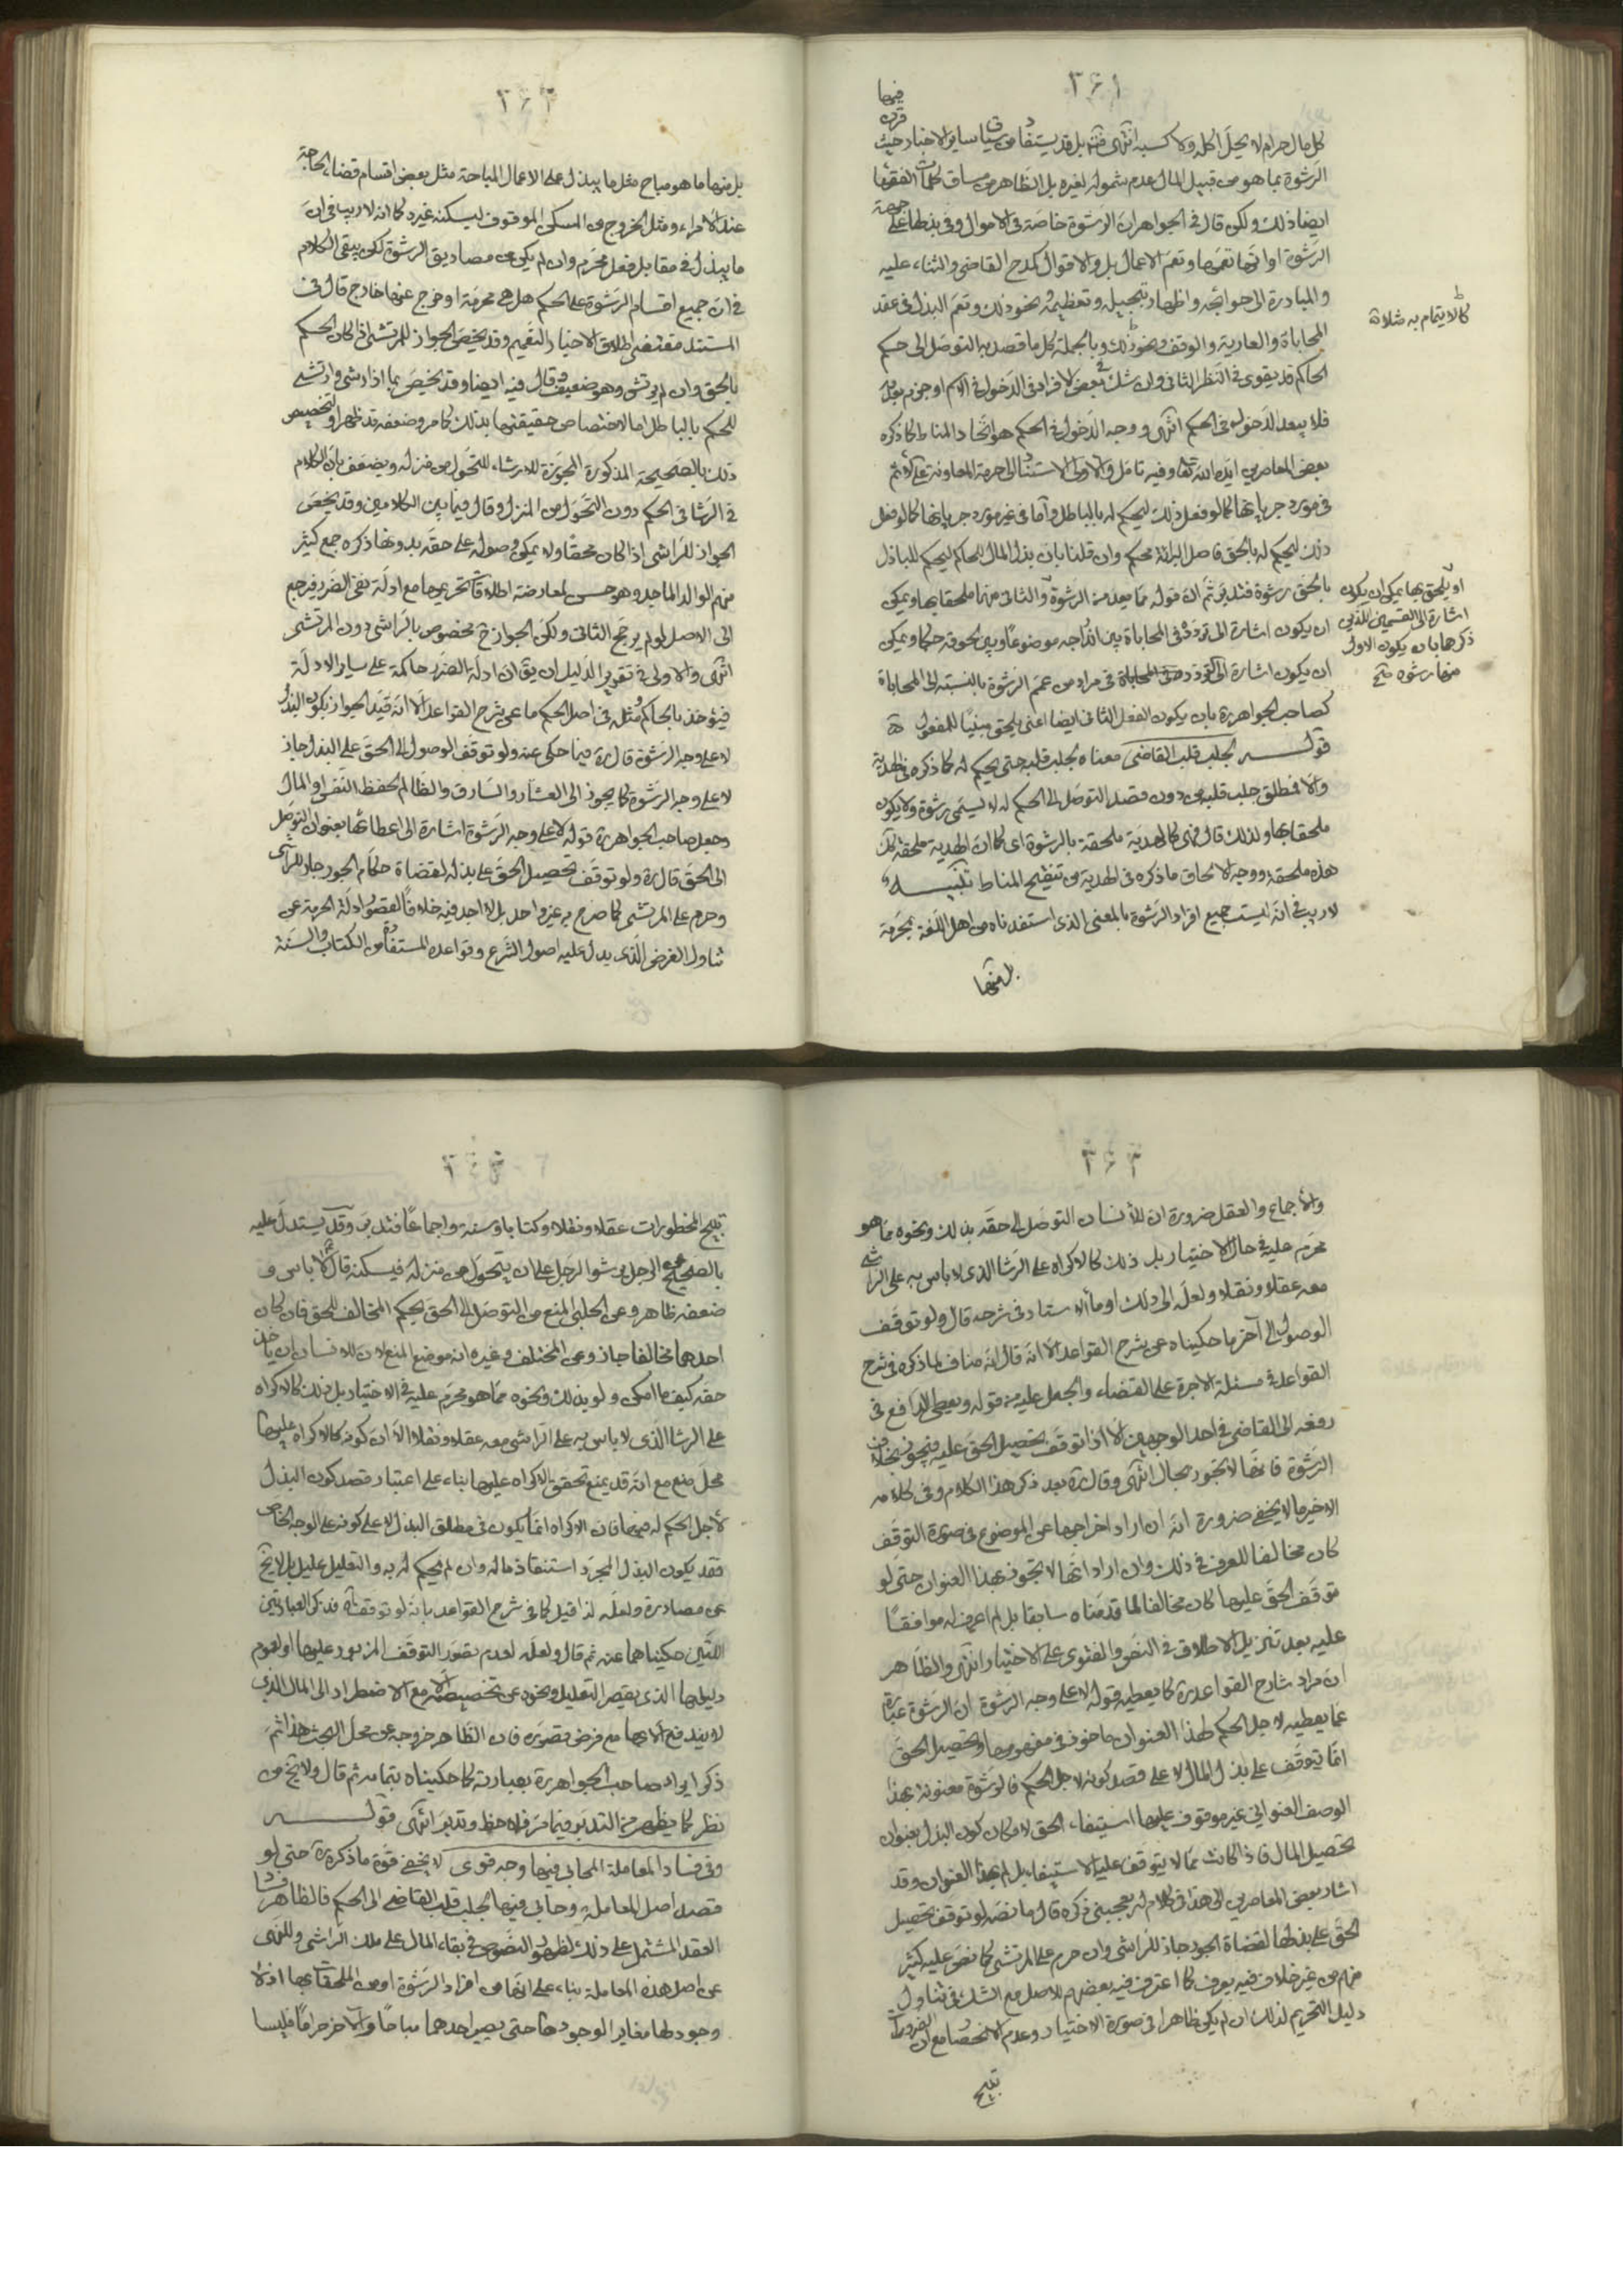 ٣۶١
فيها
كل مال حرام لا يحل اكله ولا كسبه انتهى بل قد يستفاد من سياق ساير الاخبار حيث قرن
الرشوة بما هو من قبيل المال عدم شموله لغيره بل الظاهر من مساق كلمات الفقهاء
ايضا ذلك ولكن قال في الجواهر ان الرشوة خاصة في الاموال وفي بذلها على جهة
الرشوة او انها تعمها وتعم الاعمال بل والاقوال كمدح القاضي والثناء عليه
والمبادرة الى حوائجه واظهار تبجيله وتعظيمه ونحو ذلك وتعم البذل في عقد
المحاباة والعارية والوقف ونحو ذلك وبالجملة كل ما قصد به التوصل الى حكم
الحاكم قد يقوى في النظر الثاني وان شك في بعض الافراد في الدخول في الاسم او جزم بعدمه
فلا يبعد الدخول في الحكم انتهى ووجه الدخول في الحكم هو اتحاد المناط كما ذكره
بعض المعاصرين ايده الله تعالى وفيه تامل والاولى الاستناد الى حرمة المعاونة على الاثم
في مورد جريانها كما لو فعل ذلك ليحكم له بالباطل وآما في غير مورد جريانها كما لو فعل
ذلك ليحكم له بالحق فاصل البرائة محكم وان قلنا بان بذل المال للحاكم ليحكم للباذل
بالحق رشوة فتدبر ثم ان قوله مما يعد من الرشوة او يلحق بها يمكن ان يكون
ان يكون اشارة الى تردده في المحاباة بين اندراجه موضوعا وبين لحوقه حكما ويمكن
ان يكون اشارة الى في مراد من عمم الرشوة بالنسبة الى المحاباة
كصاحب الجواهر ره بان يكون الفعل الثاني ايضا اعني يلحق مبنيا للمفعول
قوله لجلب قلب القاضي معناه لجلب قلبه حتى يحكم له كما ذكره في الهدية
والا فمطلق جلب قلبه من دون قصد التوصل الى الحكم له لا يسمى رشوة ولا يكون
ملحقا بها ولذلك قال فهي كالهدية ملحقة بالرشوة اى كما ان الهدية ملحقة كك
هذه ملحقة ووجه الالحاق ما ذكره في الهدية من تنقيح المناط تنبيه
لا ريب في انه ليست جميع افراد الرشوة بالمعنى الذى استفدناه من اهل اللغة بمحرمة
بل منها
كما لا يتمام به صلاة
او يلحق بها يمكن ان يكون
اشارة الى القسمين اللذين
ذكرهما بان يكون الاول
منها رشوة صح
٣۶٢
بل منها ما هو مباح مثل ما يبذل على الاعمال المباحة مثل بعض اقسام قضاء الحاجة
عند الامراء ومثل الخروج من المسكن الموقوف ليسكنه غيره كما انه لا ريب في ان
ما يبذل في مقابل فعل محرم وان لم يكن من مصاديق الرشوة لكن يبقى الكلام
في ان جميع اقسام الرشوة على الحكم هل هي محرمة او خرج عنها خارج قال في
المستند مقتضى اطلاق الاخبار التعميم وقد يخص الجواز للمرتشي اذا كان الحكم
بالحق وان لم يرتش وهو ضعيف وقال فيه ايضا وقد يخص بما اذا رشى وارتشى
للحكم بالباطل اما لاختصاص حقيقتها بذلك كما مر وضعفه قد ظهر او لتخصيص
ذلك بالصحيحة المذكورة المجوزة للارشاء للتحول من منزله ويضعف بان الكلام
في الرشا في الحكم دون التحول من المنزل وقال فيما بين الكلامين وقد يخص
الجواز للراشي اذا كان محقا ولا يمكن وصوله على حقه بدونها ذكره جمع كثير
منهم الوالد الماجد وهو حسن لمعارضة اطلاقات تحريمها مع ادلة نفي الضرر فيرجع
الى الاصل لو لم يرجح الثاني ولكن الجواز ح مخصوص بالراشي دون المرتشى
انتهى والاولى في تقرير الدليل ان يق ان ادلة الضرر حاكمة على ساير الادلة
فيؤخذ بالحاكم ومثله في اصل الحكم ما عن شرح القواعد الا انه قيد الجواز بكون البذل
لا على وجه الرشوة قال ره فيما حكى عنه ولو توقف الوصول الى الحق على البذل جاز
لا على وجه الرشوة كما يجوز الى العشار والسارق والظالم لحفظ النفس او المال
وجعل صاحب الجواهر ره قوله لا على وجه الرشوة اشارة الى اعطائها بعنوان التوصل
الى الحق قال ره ولو توقف تحصيل الحق على بذله لقضاة حكام الجور جاز للراشي
وحرم على المرتشى كما صرح به غير واحد بل لا اجد فيه خلافا لقصور ادلة الحرمة عن
تناول الفرض الذى يدل عليه اصول الشرع وقواعده المستفادة من الكتاب والسنة
٣۶٣
والاجماع والعقل ضرورة ان للانسان التوصل الى حقه بذلك ونحوه مما هو
محرم عليه في حال الاختيار بل ذلك كالاكراه على الرشا الذى لا باس به على الراشي
معه عقلا ونقلا ولعل الى ذلك اومأ الاستاد في شرحه قال ولو توقف
الوصول الى آخر ما حكيناه عن شرح القواعد الا انه قال انه مناف لما ذكره في شرح
القواعد في مسئلة الاجرة على القضاء والجعل عليه من قوله ويعطى الدافع في
دفعه الى القاضي في احد الوجهين الا اذا توقف تحصيل الحق عليه فيجوز بخلاف
الرشوة فانها لا تجوز بحال انتهى وقال ره بعد ذكر هذا الكلام وفي كلامه
الاخير ما لا يخفى ضرورة انه ان اراد اخراجها عن الموضوع في صورة التوقف
كان مخالفا للعرف في ذلك وان اراد انها لا تجوز بهذا العنوان حتى لو
توقف الحق عليها كان مخالفا لما قدمناه سابقا بل لم اعرف له موافقا
عليه بعد تنزيل الاطلاق في النص والفتوى على الاختيار انتهى والظاهر
ان مراد شارح القواعد ره كما يعطيه قوله لا على وجه الرشوة ان الرشوة عبارة
عما يعطيه لاجل الحكم فهذا العنوان ماخوذ في مفهومها وتحصيل الحق
انما يتوقف على بذل المال لا على قصد كونه لاجل الحكم فالرشوة معنونة بهذا
الوصف العنوانى غير موقوف عليها استيفاء الحق لامكان كون البذل بعنوان
تحصيل المال فاذا كانت مما لا يتوقف عليه الاستيفاء بل لم بهذا العنوان وقد
اشار بعض المعاصرين الى هذا في كلام له يعجبني ذكره قال ما نصه لو توقف تحصيل
الحق على بذلها لقضاة الجور جاز للراشي وان حرم على المرتشى كما نص عليه كثير
منهم من غير خلاف فيه يعرف كما اعترف فيه بعضهم للاصل مع الشك في تناول
دليل التحريم لذلك ان لم يكن ظاهرا في صورة الاختيار وعدم الانحصار مع ان الضرورات
تبيح
٣۶۴
تبيح المحظورات عقلا ونقلا وكتابا وسنة واجماعا فتدبر وقد يستدل عليه
بالصحيح عن الرجل يرشو الرجل على ان يتحول من منزله فيسكنه قال لا باس و
ضعفه ظاهر وعن الحلبي المنع من التوصل الى الحق بحكم المخالف للحق فان كان
احدهما مخالفا جاز وعن المختلف وغيره انه موضع المنع لان للانسان ان ياخذ
حقه كيف ما امكن ولو بذلك ونحوه مما هو محرم عليه في الاختيار بل ذلك كالاكراه
على الرشا الذى لا باس به على الراشي معه عقلا ونقلا الا ان كونه كالاكراه عليها
محل منع مع انه قد يمنع تحقق الاكراه عليها بناء على اعتبار قصد كون البذل
لاجل الحكم له فيها فان الاكراه انما يكون في مطلق البذل لا على كونه على الوجه الخاص
فقد يكون البذل المجرد استنقاذ ماله وان لم يحكم له به والتعليل عليل بل لا يخ
عن مصادرة ولعله لذا قيل كما في شرح القواعد بانه لو توقف آه فذكر العبارتين
اللتين حكيناهما عنه ثم قال ولعله لعدم تصور التوقف المزبور عليها او لعموم
دليلها الذى يقصر التعليل ونحوه عن تخصيصه الا مع الاضطرار الى المال الذى
لا يندفع الا بها مع فرض تصوره فان الظاهر خروجه عن محل البحث هذا ثم
ذكر ايراد صاحب الجواهر ره بعبارته كما حكيناه بتمامه ثم قال ولا يخ من
نظر كما يظهر من التدبر فيما مر فلاحظ وتدبر انتهى قوله
وفي فساد المعاملة المحابى فيها وجه قوى لا يخفى قوة ما ذكره ره حتى لو
قصد اصل المعاملة وحابى فيها لجلب قلب القاضي الى الحكم فالظاهر فساد
العقد المشتمل على ذلك لظهور النصوص في بقاء المال على ملك الراشي وللنهى
عن اصل هذه المعاملة بناء على انها من افراد الرشوة او من الملحقات بها اذ لا
وجود لها مغاير الوجودها حتى يصير احدهما مباحا والاخر حراما فليسا